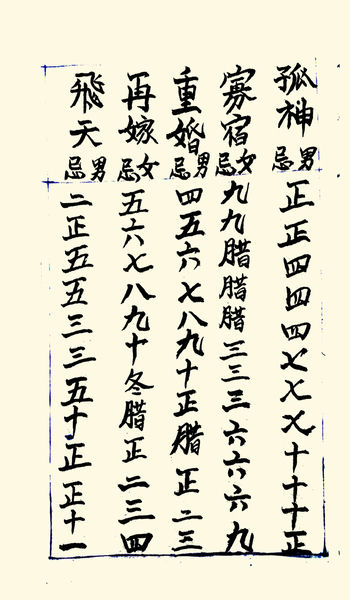 孤神男忌正正四四四七七七十十十正
寡宿女忌九九腊腊腊三三三六六六九
重婚男忌四五六七八九十正腊正二三
再嫁女忌五六七八九十冬腊正二三四
飛天男忌二正五五三三五十正正十一